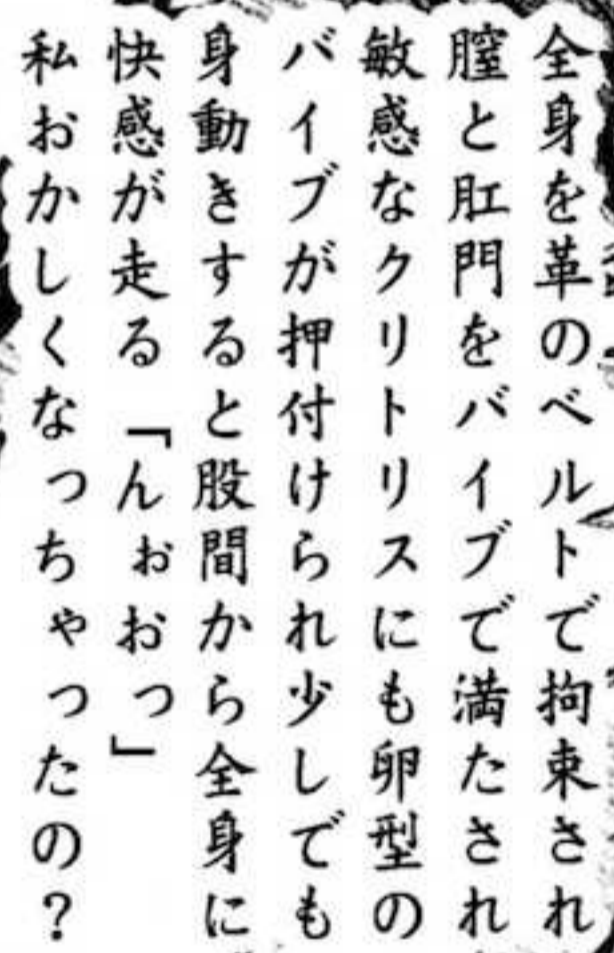 全身を革のベルトで拘束され
膣と肛門をバイブで満たされ
敏感なクリトリスにも卵型の
バイブが押付けられ少しでも
身動きすると股間から全身に
快感が走る「んぉおっ」
私おかしくなっちゃったの?